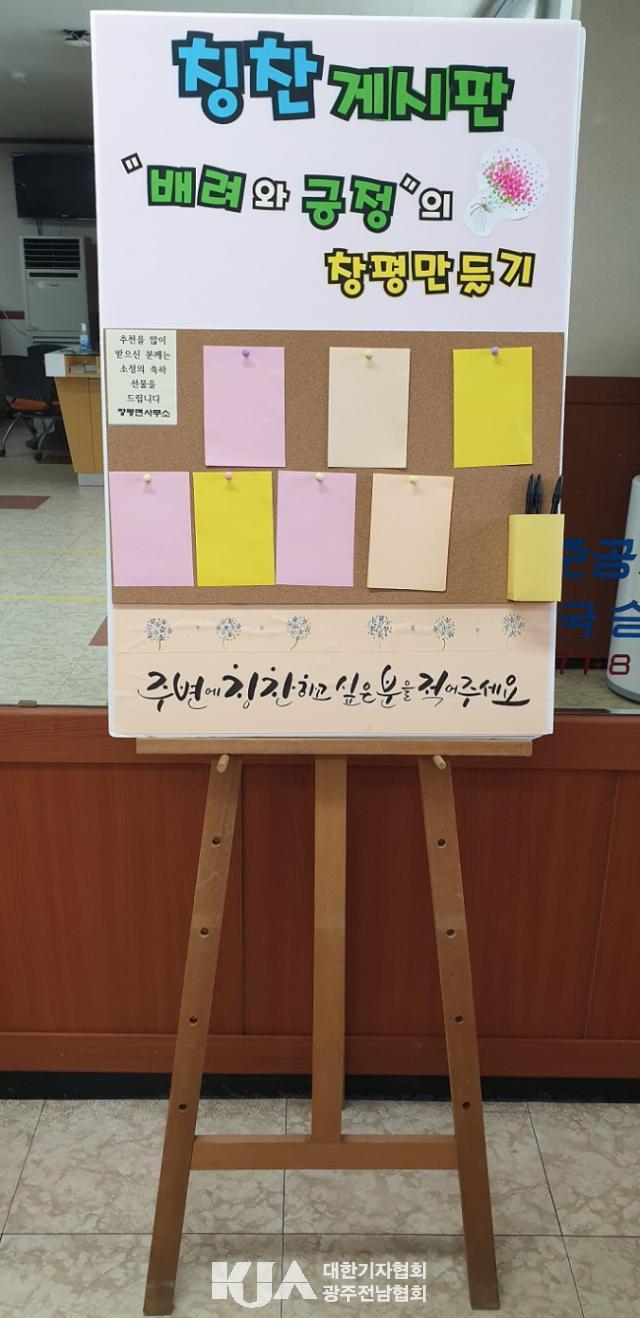 칭찬 게시판
"배려와 긍정"의
창평만듦기
추천을 많이
받으신 분께는
소정의 축하
선물을
드립니다
창평면사무소
주변에 칭찬하고 싶은 분을 적어주세요
준공
국 승
77-8
KJA 대한기자협회
광주전남협회